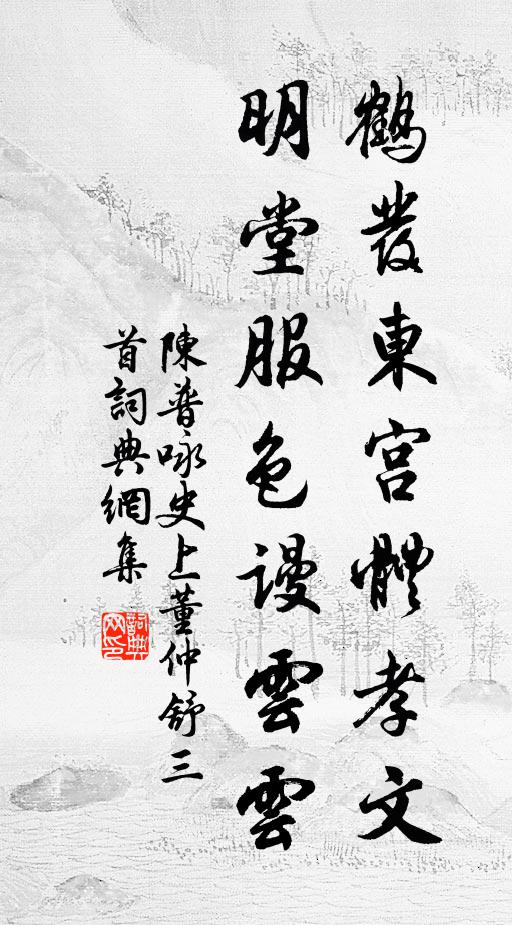 鶴發東宮體孝文
明堂服色謾雲雲
陳普咏史上董仲舒三
首詞典網集
詞典
网印